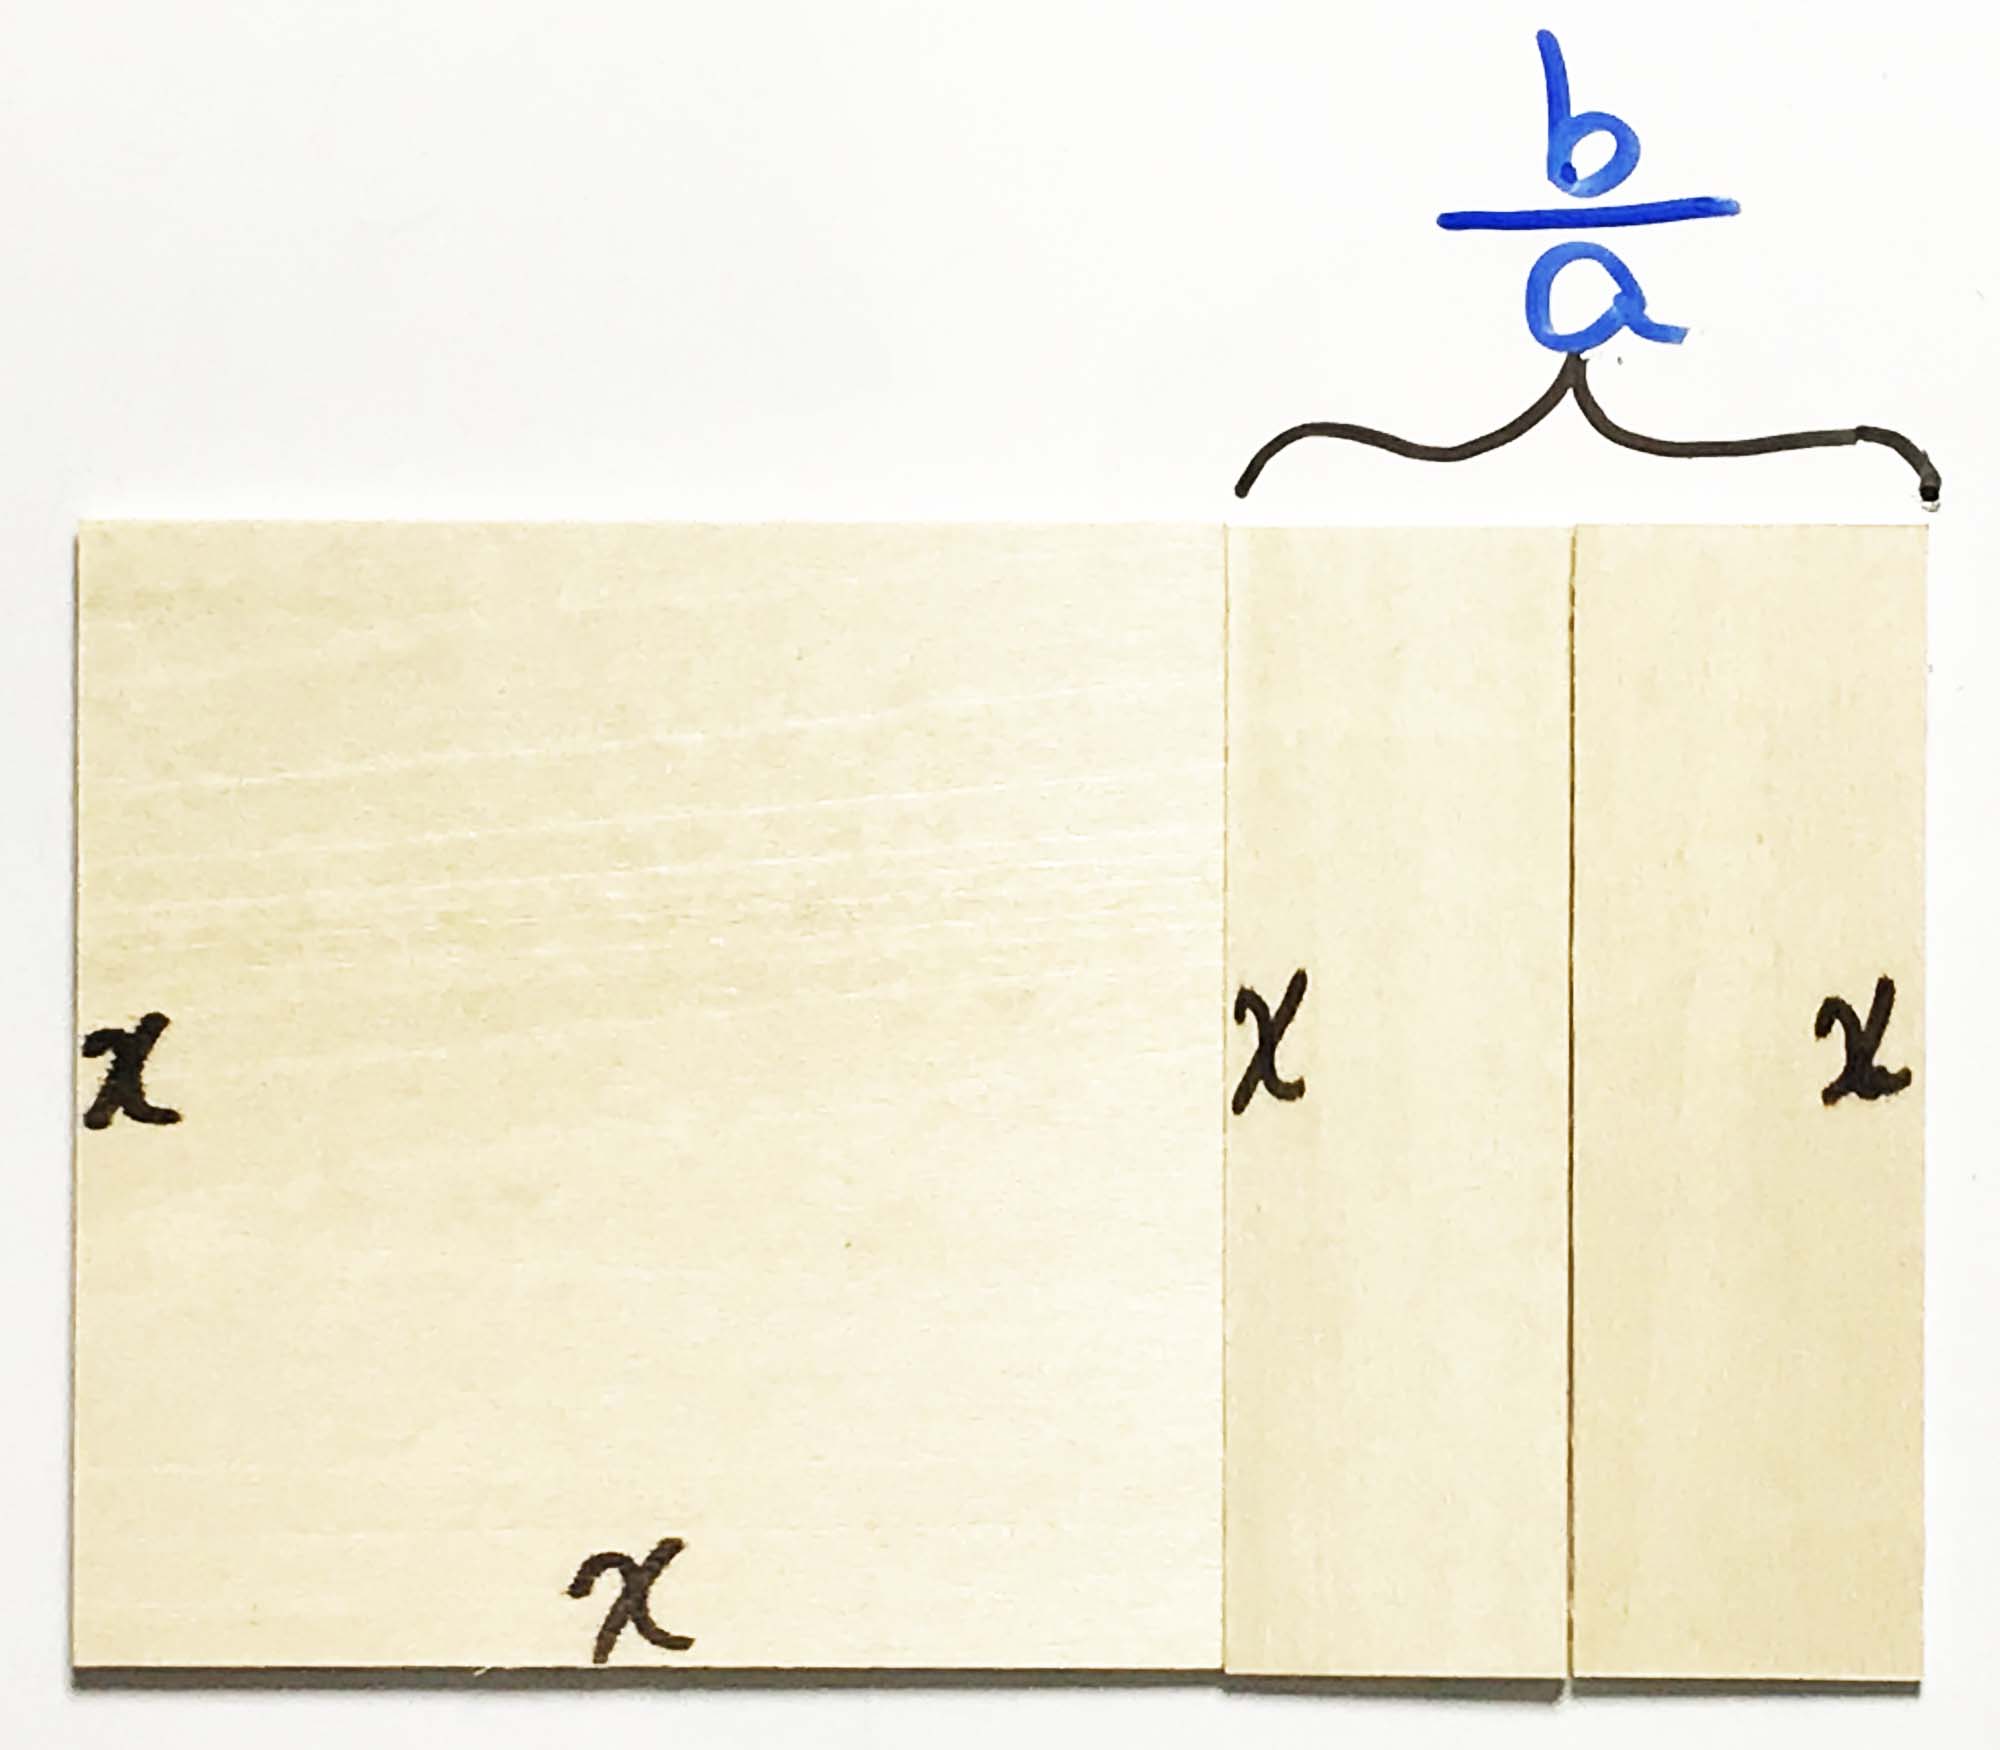 b
a
x x x
x